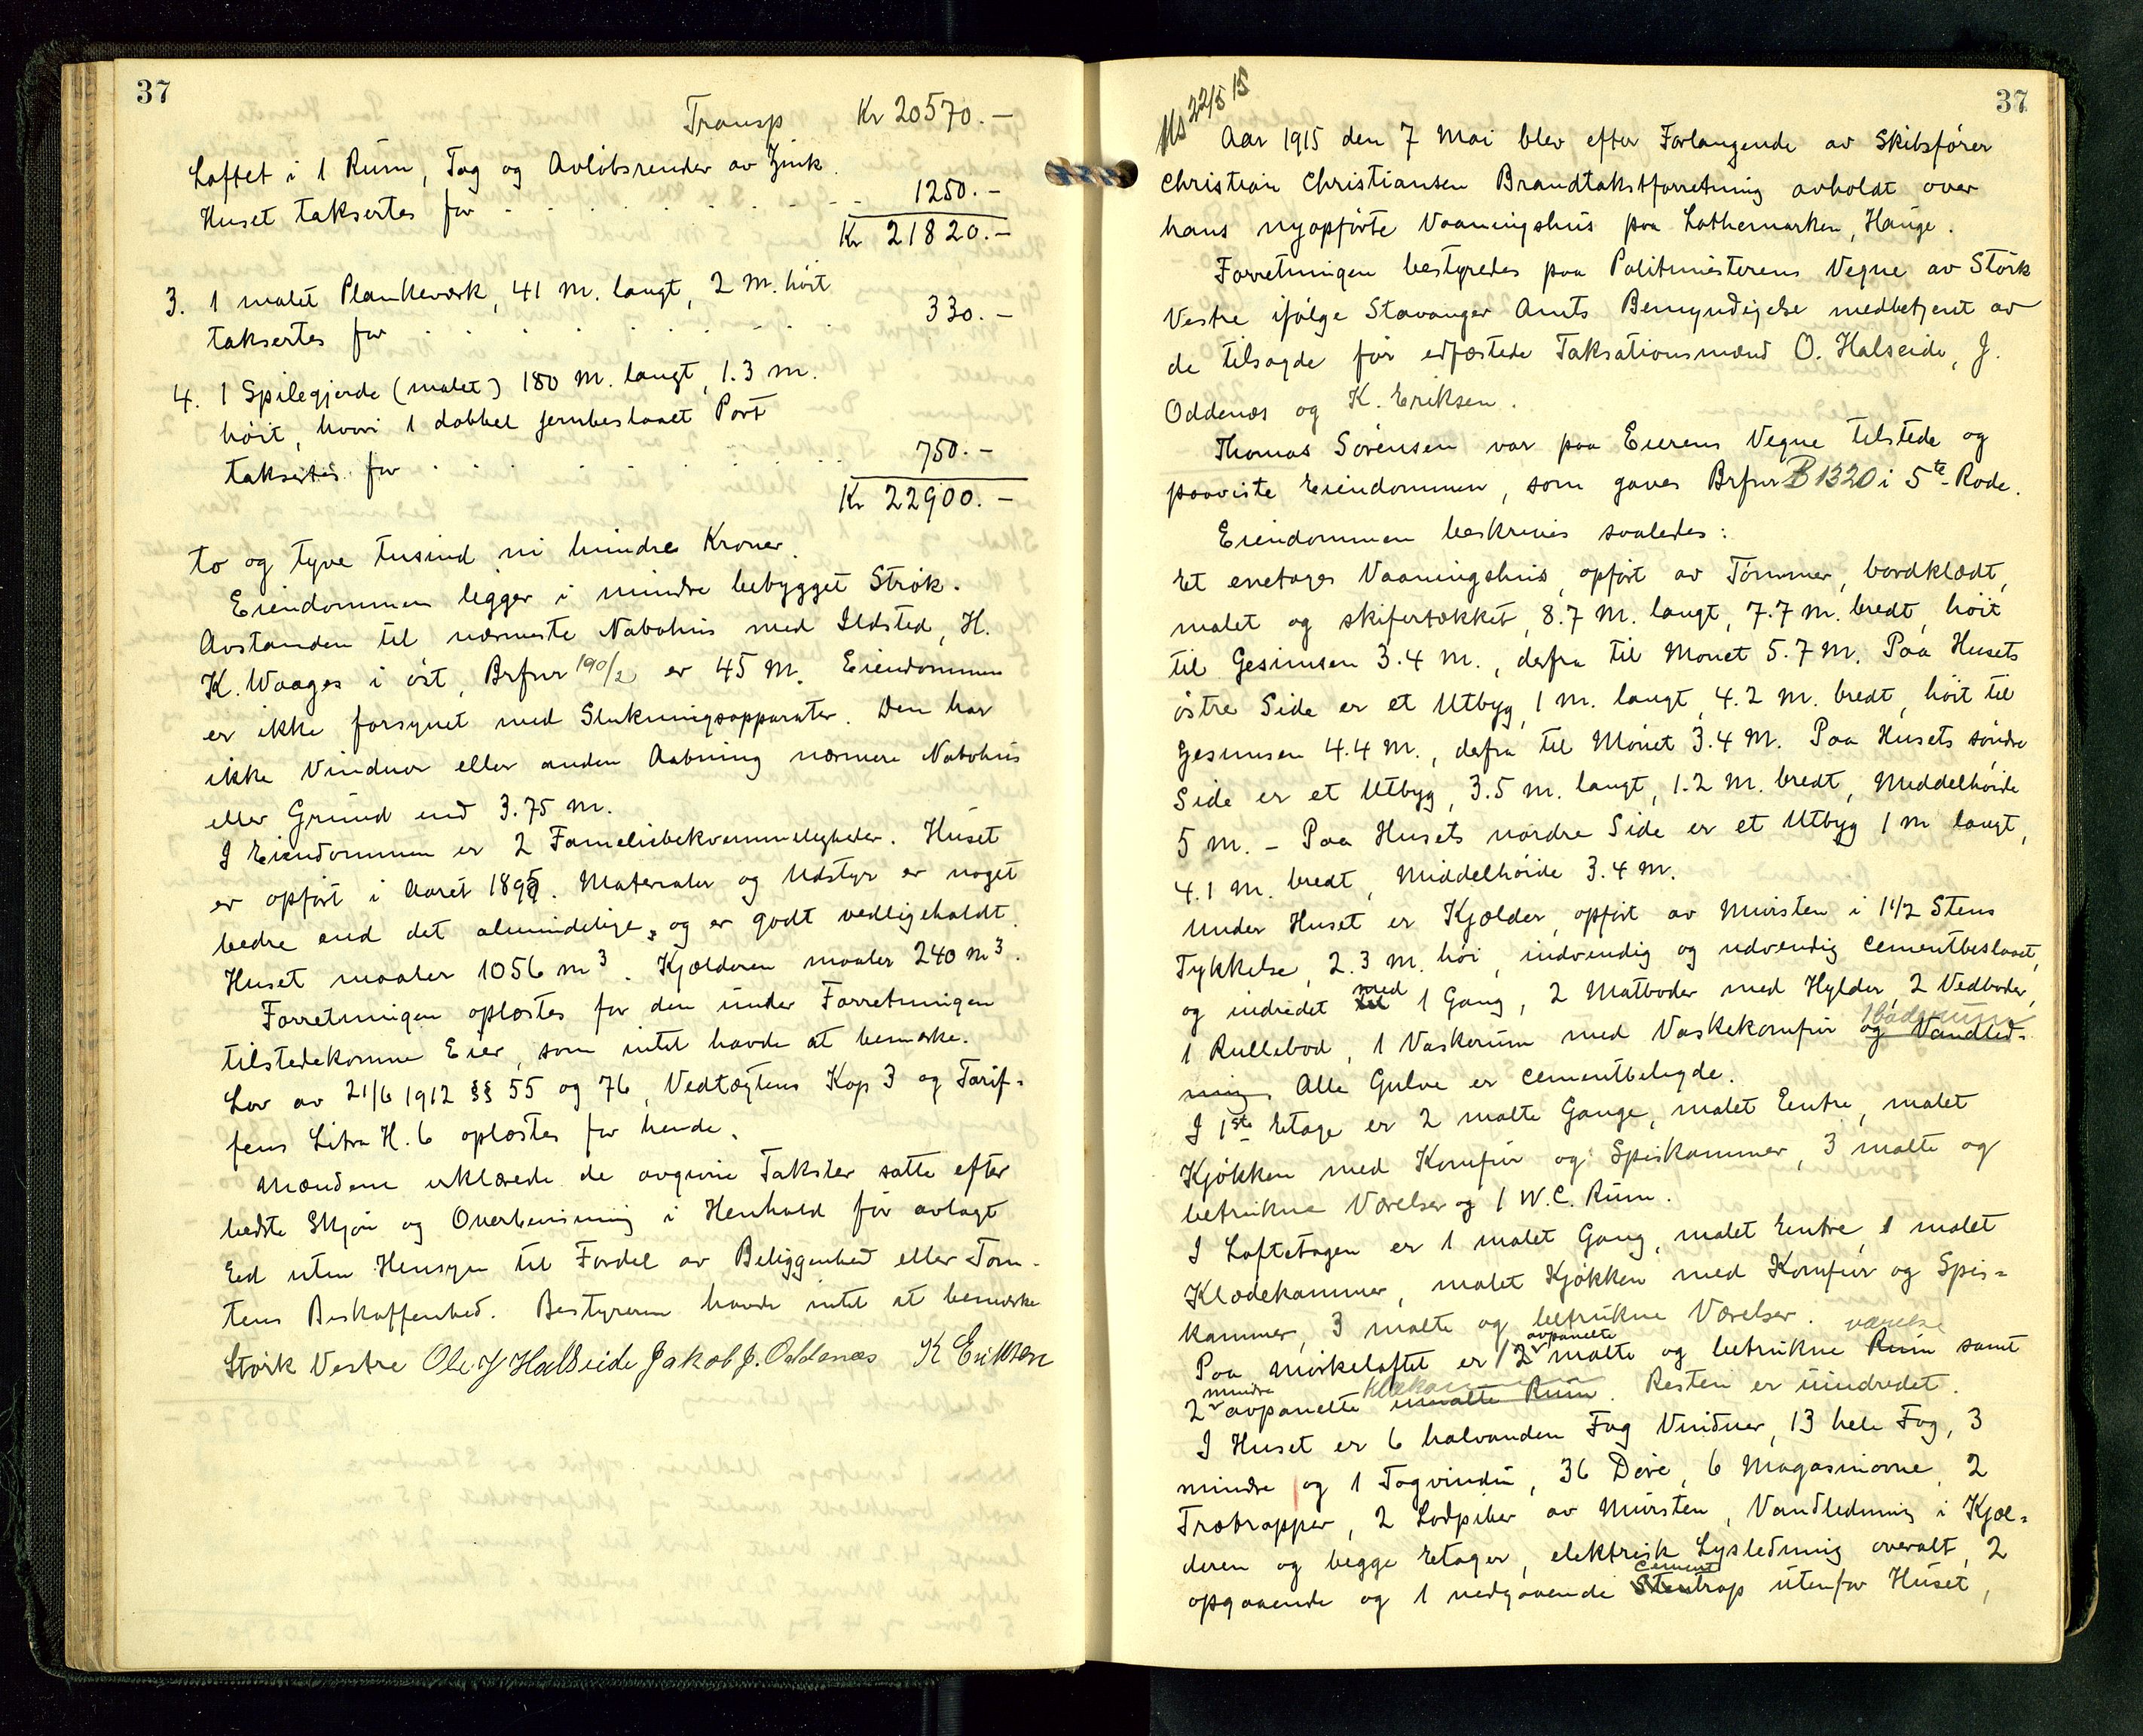 37
Transp Kr 20570.-
Loftet i 1 Rum, Tag og Avløbsrender av Zink.
Huset taksertes for . . . . . . . 1250.-
Kr 21820.-
3. 1 malet Plankeværk, 41 M. langt, 2 M. høit
taksertes for . . . . . . . 330.-
4. 1 Spilegjerde (malet) 180 M. langt, 1.3 M.
høit, hvori 1 dobbel jernbeslaaet Port
taksertes for . . . . . . . 750.-
Kr 22900.-
to og tyve tusind ni hundre Kroner.
Eiendommen ligger i mindre bebygget Strøk.
Avstanden til nærmeste Nabohus med Ildsted, H.
K. Waages i øst, Brfnr 190/2 er 45 M. Eiendommen
er ikke forsynet med Slukningsapparater. Den har
ikke Vinduer eller anden Aabning nærmere Nabohus
eller Grund end 3.75 M.
I Eiendommen er 2 Familiebekvemmeligheder. Huset
er opført i Aaret 1895. Materialer og Udstyr er noget
bedre end det almindelige, og er godt vedligeholdt.
Huset maaler 1056 m3. Kjælderen maaler 240 m3.
Forretningen oplæstes for den under Forretningen
tilstedekomne Eier, som intet havde at bemærke.
Lov av 21/6 1912 §§ 55 og 76, Vedtægtens Kap 3 og Tarif-
fens Litra H. 6 oplæstes for hende.
Mændene erklærede de avgivne Takster satte efter
bedste Skjøn og Overbevisning i Henhold før avlagt
Eed uten Hensyn til Fordel av Beliggenhed eller Tom-
tens Beskaffenhed. Bestyreren havde intet at bemerke
Størk Vestre Ole J Halseide Jakob J. Oddenæs K Eriksen
37
22/5 15
Aar 1915 den 7 Mai blev efter Forlangende av Skibsfører
Christian Christiansen Brandtakstforretning avholdt over
hans nyopførte Vaaningshus paa Lothemarken, Hauge.
Forretningen bestyredes paa Politimesterens Vegne av Størk
Vestre ifølge Stavanger Amts Bemyndigelse medbetjent av
de tilsagde før edfæstede Taksationsmænd O. Halseide, J.
Oddenæs og K. Eriksen.
Thomas Sørensen var paa Eierens Vegne tilstede og
paaviste Eiendommen, som gaves Brfnr B 1320 i 5te Rode.
Eiendommen beskrives saaledes:
Et enetages Vaaningshus, opført av Tømmer, bordklædt,
malet og skifertækket, 8.7 M. langt, 7.7 M. bredt, høit
til Gesimsen 3.4 M., derfra til Mønet 5.7 M. Paa Husets
østre Side er et Utbyg, 1 M. langt, 4.2 M. bredt, høit til
Gesimsen 4.4 M., derfra til Mønet 3.4 M. Paa Husets søndre
Side er et Utbyg, 3.5 M. langt, 1.2 M. bredt, Middelhøide
5 M. - Paa Husets nordre Side er et Utbyg 1 M langt,
4.1 M. bredt, Middelhøide 3.4 M.
Under Huset er Kjælder, opført av Mursten i 1 1/2 Stens
Tykkelse, 2.3 M. høi, indvendig og udvendig cementbeslaaet,
og indredet til med 1 Gang, 2 Matboder med Hylder, 2 Vedboder,
1 Rullebod, 1 Vaskerum med Vaskekomfur og Vandled- 1 baderum
ning. Alle Gulve er cementbelagte.
I 1ste Etage er 2 malte Gange, malet Entre, malet
Kjøkken med Komfur og Spiskammer, 3 malte og
betrukne Værelser og 1 W.C. Rum.
I Loftetagen er 1 malet Gang, malet Entre, 1 malet
Klædekammer, malet Kjøkken med Komfur og Spis-
kammer, 3 malte og betrukne Værelser.
Paa Mørkeloftet er 2 avpanelte malte og betrukne Rum værelse samt
2 mindre avpanelte umalte Rum. Resten er uindredet.
I Huset er 6 halvanden Fag Vinduer, 13 hele Fag, 3
mindre og 1 Tagvindu, 36 Døre, 6 Magasinovne, 2
Trætrapper, 2 Lodpiber av Mursten, Vandledning i Kjæl-
deren og begge Etager, elektrisk Lysledning overalt, 2
opgaaende og 1 nedgaaende Cementtrap utenfor Huset,